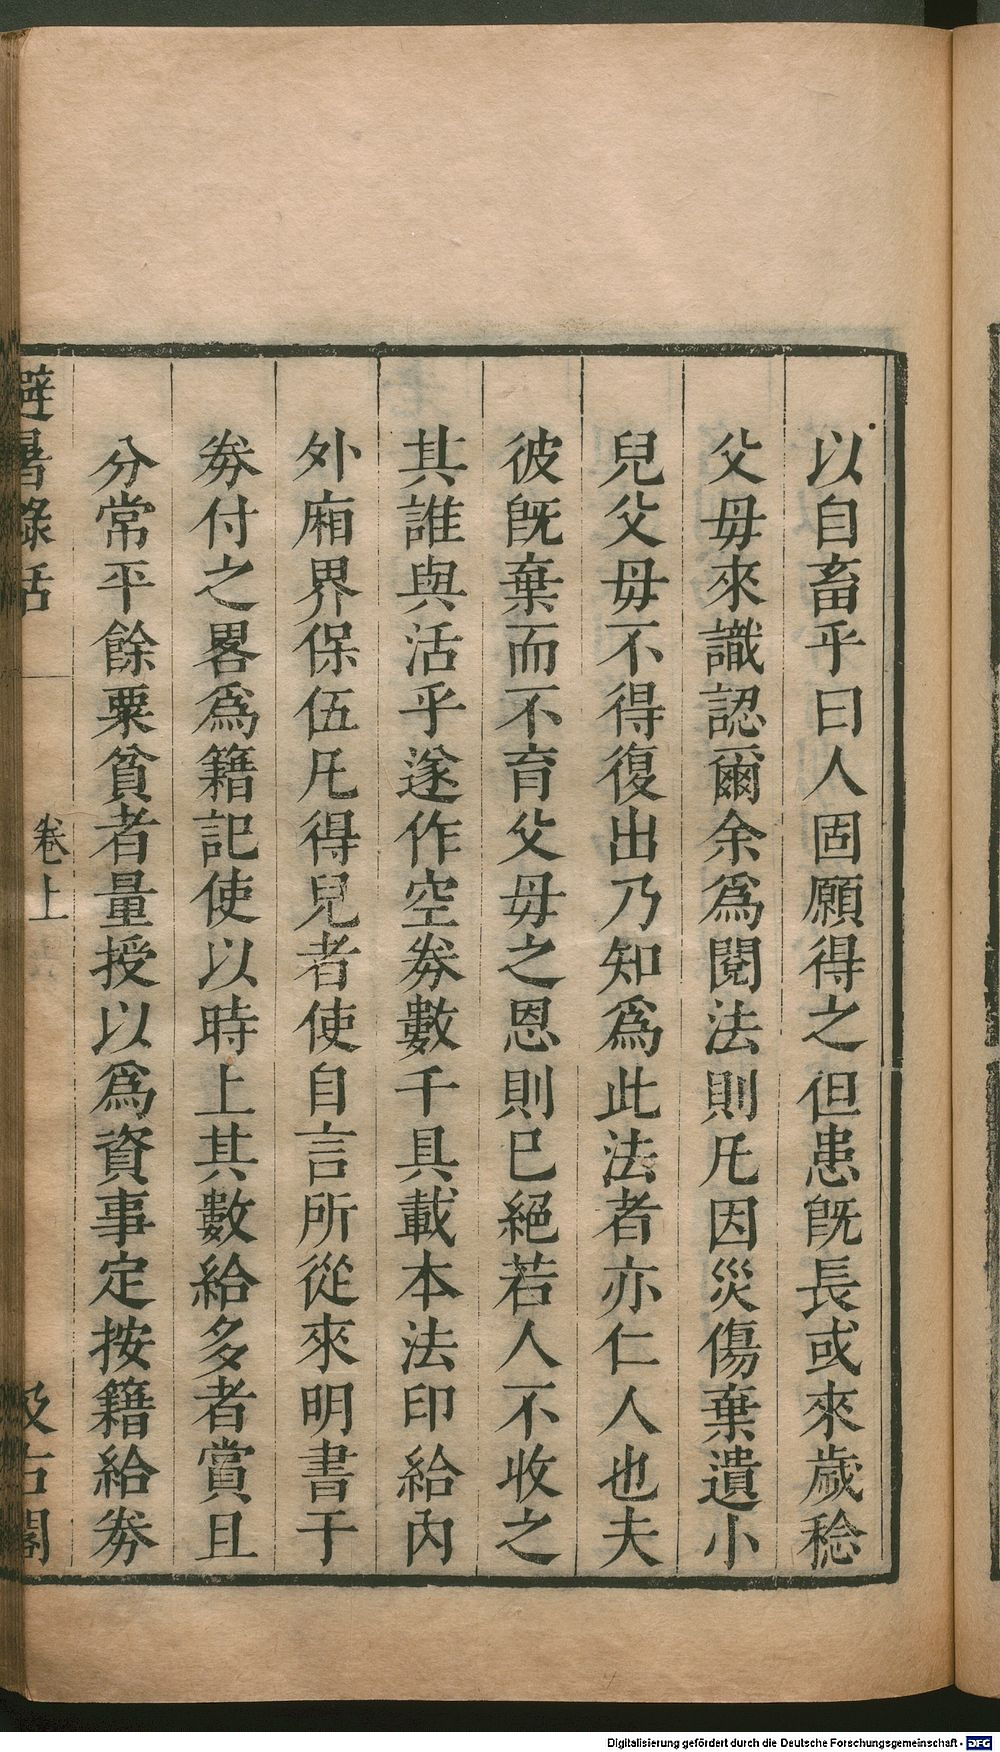 以自畜乎曰人固願得之但患旣長或來歲稔
父毋來識認爾余爲閱法則凡因災傷棄遺小
兒父毋不得復出乃知爲此法者亦仁人也夫
彼旣棄而不育父毋之恩則巳絕若人不收之
其誰與活乎遂作空劵數千具載本法印給內
外廂界保伍凡得兒者使自言所從來明書于
劵付之畧爲籍記使以時上其數給多者賞且
分常平餘粟貧者量授以爲資事定按籍給劵
避暑錄話 卷上 汲古閣
Digitalisierung gefördert durch die Deutsche Forschungsgemeinschaft - DFG